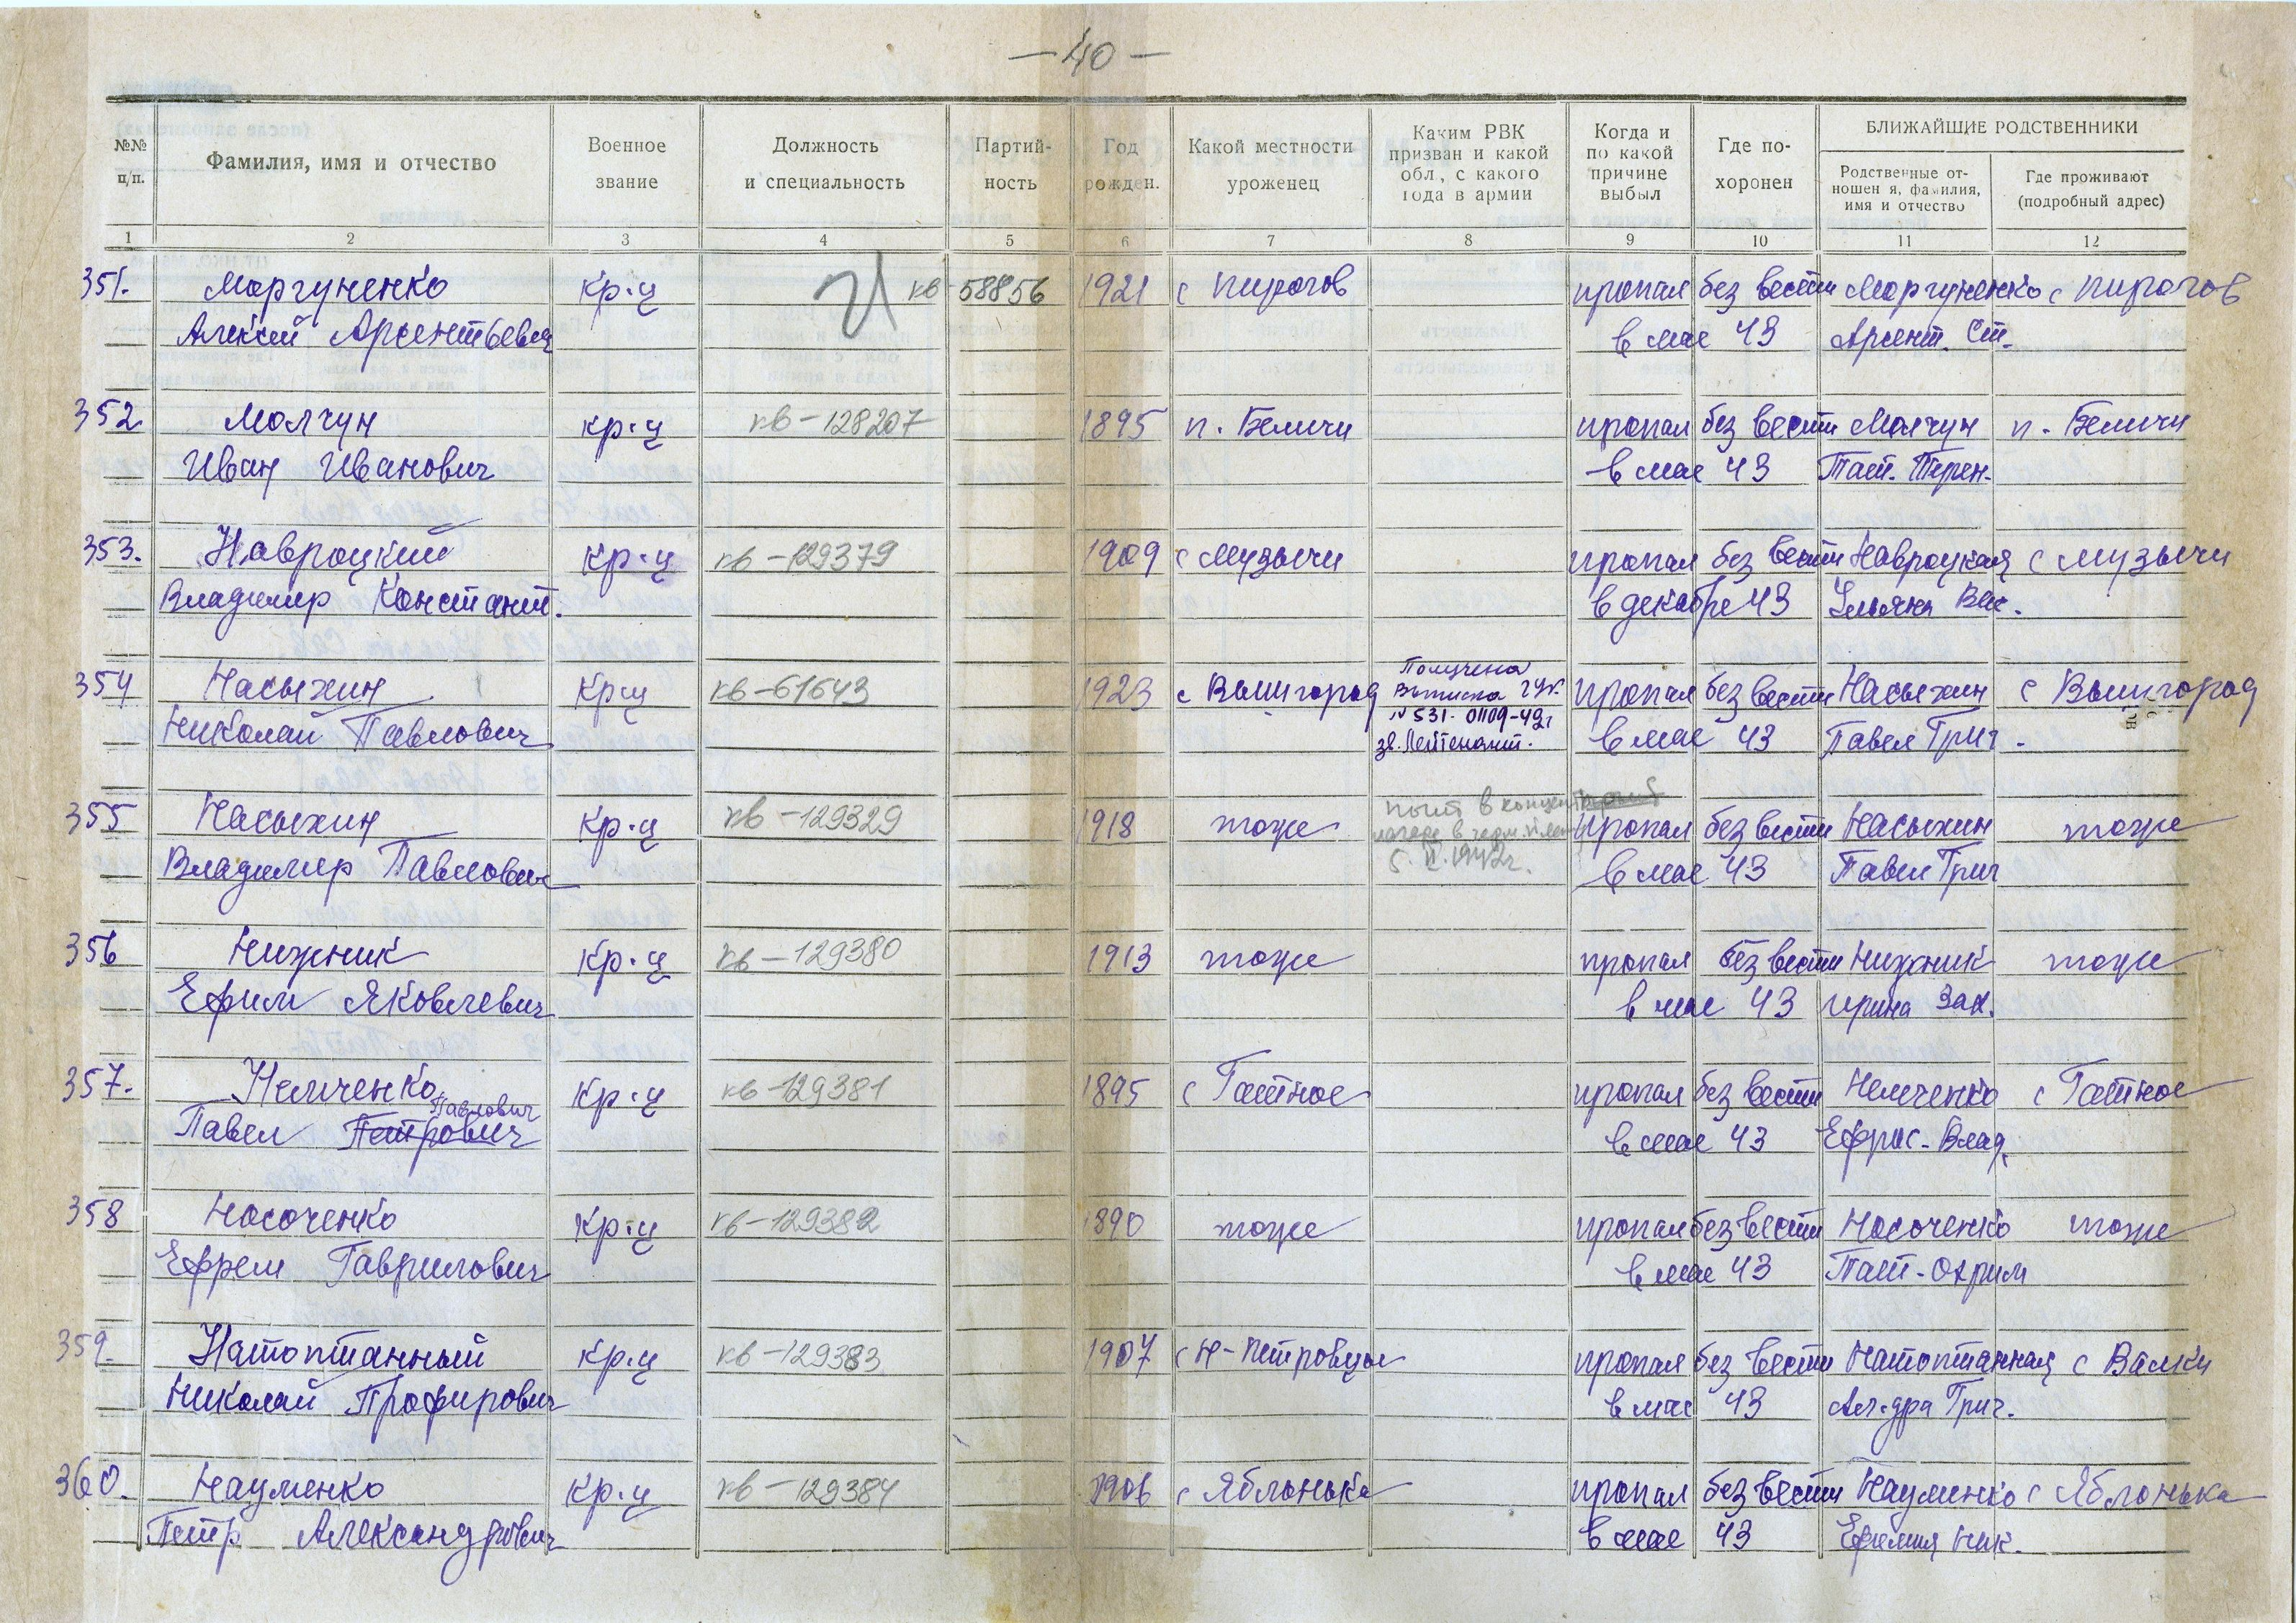 — 40 —
№№ п/п.
Фамилия, имя и отчество
Военное звание
Должность и специальность
Партий- ность
Год рожден.
Какой местности уроженец
Каким РВК призван и какой обл., с какого года в армии
Когда и по какой причине выбыл
Где по- хоронен
БЛИЖАЙШИЕ РОДСТВЕННИКИ
Родственные от- ношен я, фамилия, имя и отчество
Где проживают (подробный адрес)
1 2 3 4 5 6 7 8 9 10 11 12
351. Моргуненко кр-ц кв-58856 1921 с Пирогов пропал без вести Моргуненко с Пирогов
Алексей Арсентьевич в мае 43 Арсент. Ст.
352 Молчун кр-ц кв-128207 1895 п. Беличи пропал без вести Молчун п. Беличи
Иван Иванович в мае 43 Тат. Терен.
353. Навроцкий кр-ц кв-129379 1909 с Музычи пропал без вести Навроцкая с Музычи
Владимир Констант. в декабре 43 Ульяна Вас.
354 Насыхин кр-ц кв-61643 1923 с Вышгород Получена Выписка ГУК. пропал без вести Насыхин с Вышгород
Николай Павлович №531. 01109-42г зв. Лейтенант. в мае 43 Павел Григ.
355 Насыхин кр-ц кв-129329 1918 тоже пропал без вести Насыхин тоже
Владимир Павлович в концент лагере в герм. 1942г. в мае 43 Павел Григ
356 Нижник кр-ц кв-129380 1913 тоже пропал без вести Нижник тоже
Ефим Яковлевич в мае 43 Ирина Зах.
357. Немченко кр-ц кв-129381 1895 с Гатное пропал без вести Немченко с Гатное
Павлович
Павел Петрович в мае 43 Ефрос. Влад.
358 Носоченко кр-ц кв-129382 1890 тоже пропал без вести Носоченко тоже
Ефрем Гаврилович в мае 43 Тат-Охрим
359. Натоптанный кр-ц кв-129383 1907 с Н-Петровцы пропал без вести Натоптанная с Валки
Николай Профирович в мае 43 Ал-дра Григ.
360. Науменко кр-ц кв-129384 1906 с Яблонька пропал без вести Науменко с Яблонька
Петр Александрович в мае 43 Ефимия Ник.